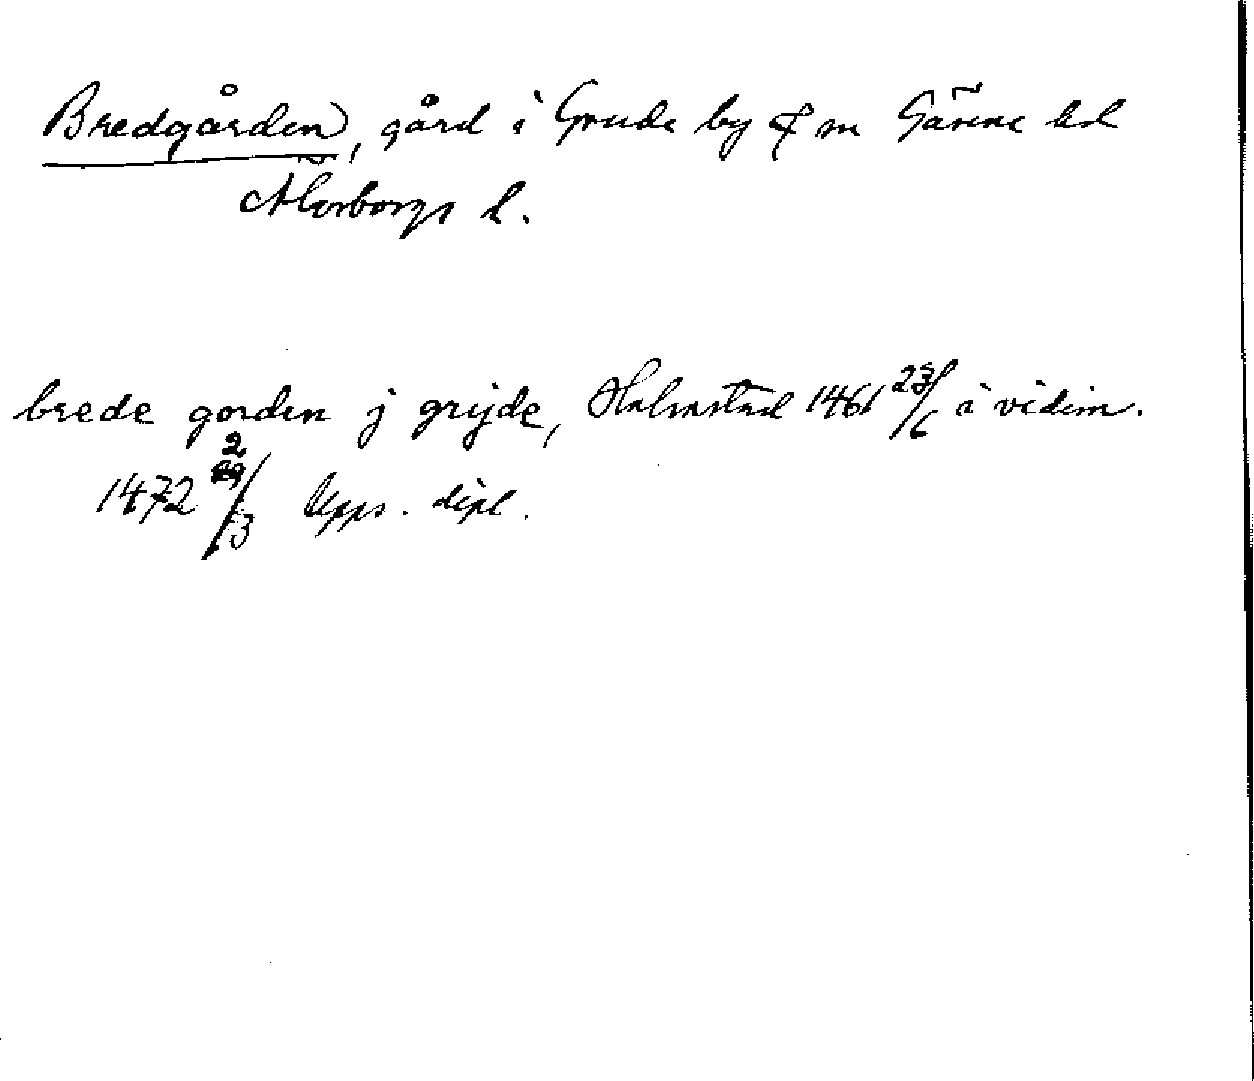 Bredgården, gård i Grude by o m Gäsene hd
Älvsborgs l.
brede gorden j grijde, Halmstad 1461 23/6 i vidim.
1472 2/3 Upps. dipl.